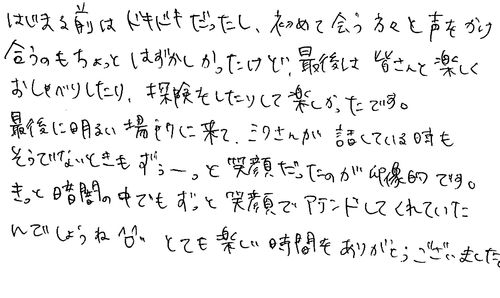 はじまる前はドキドキだったし、初めて会う方々と声をかけ
合うのもちょっとはずかしかったけど、最後は皆さんと楽しく
おしゃべりしたり、探険をしたりして楽しかったです。
最後に明るい場所に来て、ミワさんが話している時も
そうでないときもずぅーっと笑顔だったのが印象的です。
きっと暗闇の中でもずっと笑顔でアテンドしてくれていた
んでしょうね とても楽しい時間をありがとうございました